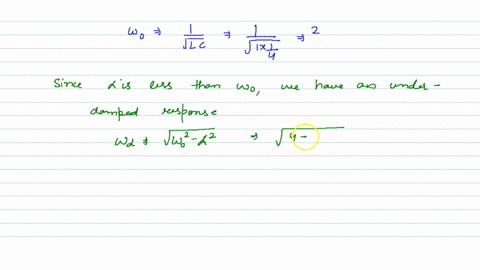 ω₀ ⇒ 1/√LC ⇒ 1/√(1x1/4) ⇒ 2
Since α is less than ω₀, we have an under-
damped response
ωd ⇒ √(ω₀² - α²) ⇒ √(4 -